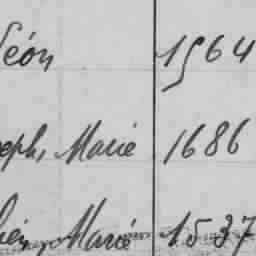 Léon 1564
eph, Marie 1686
ien, Marie 1537